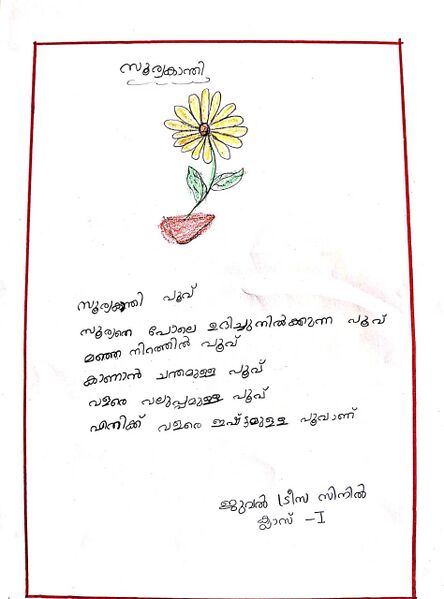 സൂര്യകാന്തി
സൂര്യകാന്തി പൂവ്
സൂര്യനെ പോലെ ഉദിച്ചുനിൽക്കുന്ന പൂവ്
മഞ്ഞ നിറത്തിൽ പൂവ്
കാണാൻ ചന്തമുള്ള പൂവ്
വളരെ വലുപ്പമുള്ള പൂവ്
എനിക്ക് വളരെ ഇഷ്ട്ടമുള്ള പൂവാണ്
ജുവൽ ട്രീസ സിനിൽ
ക്ലാസ് -I